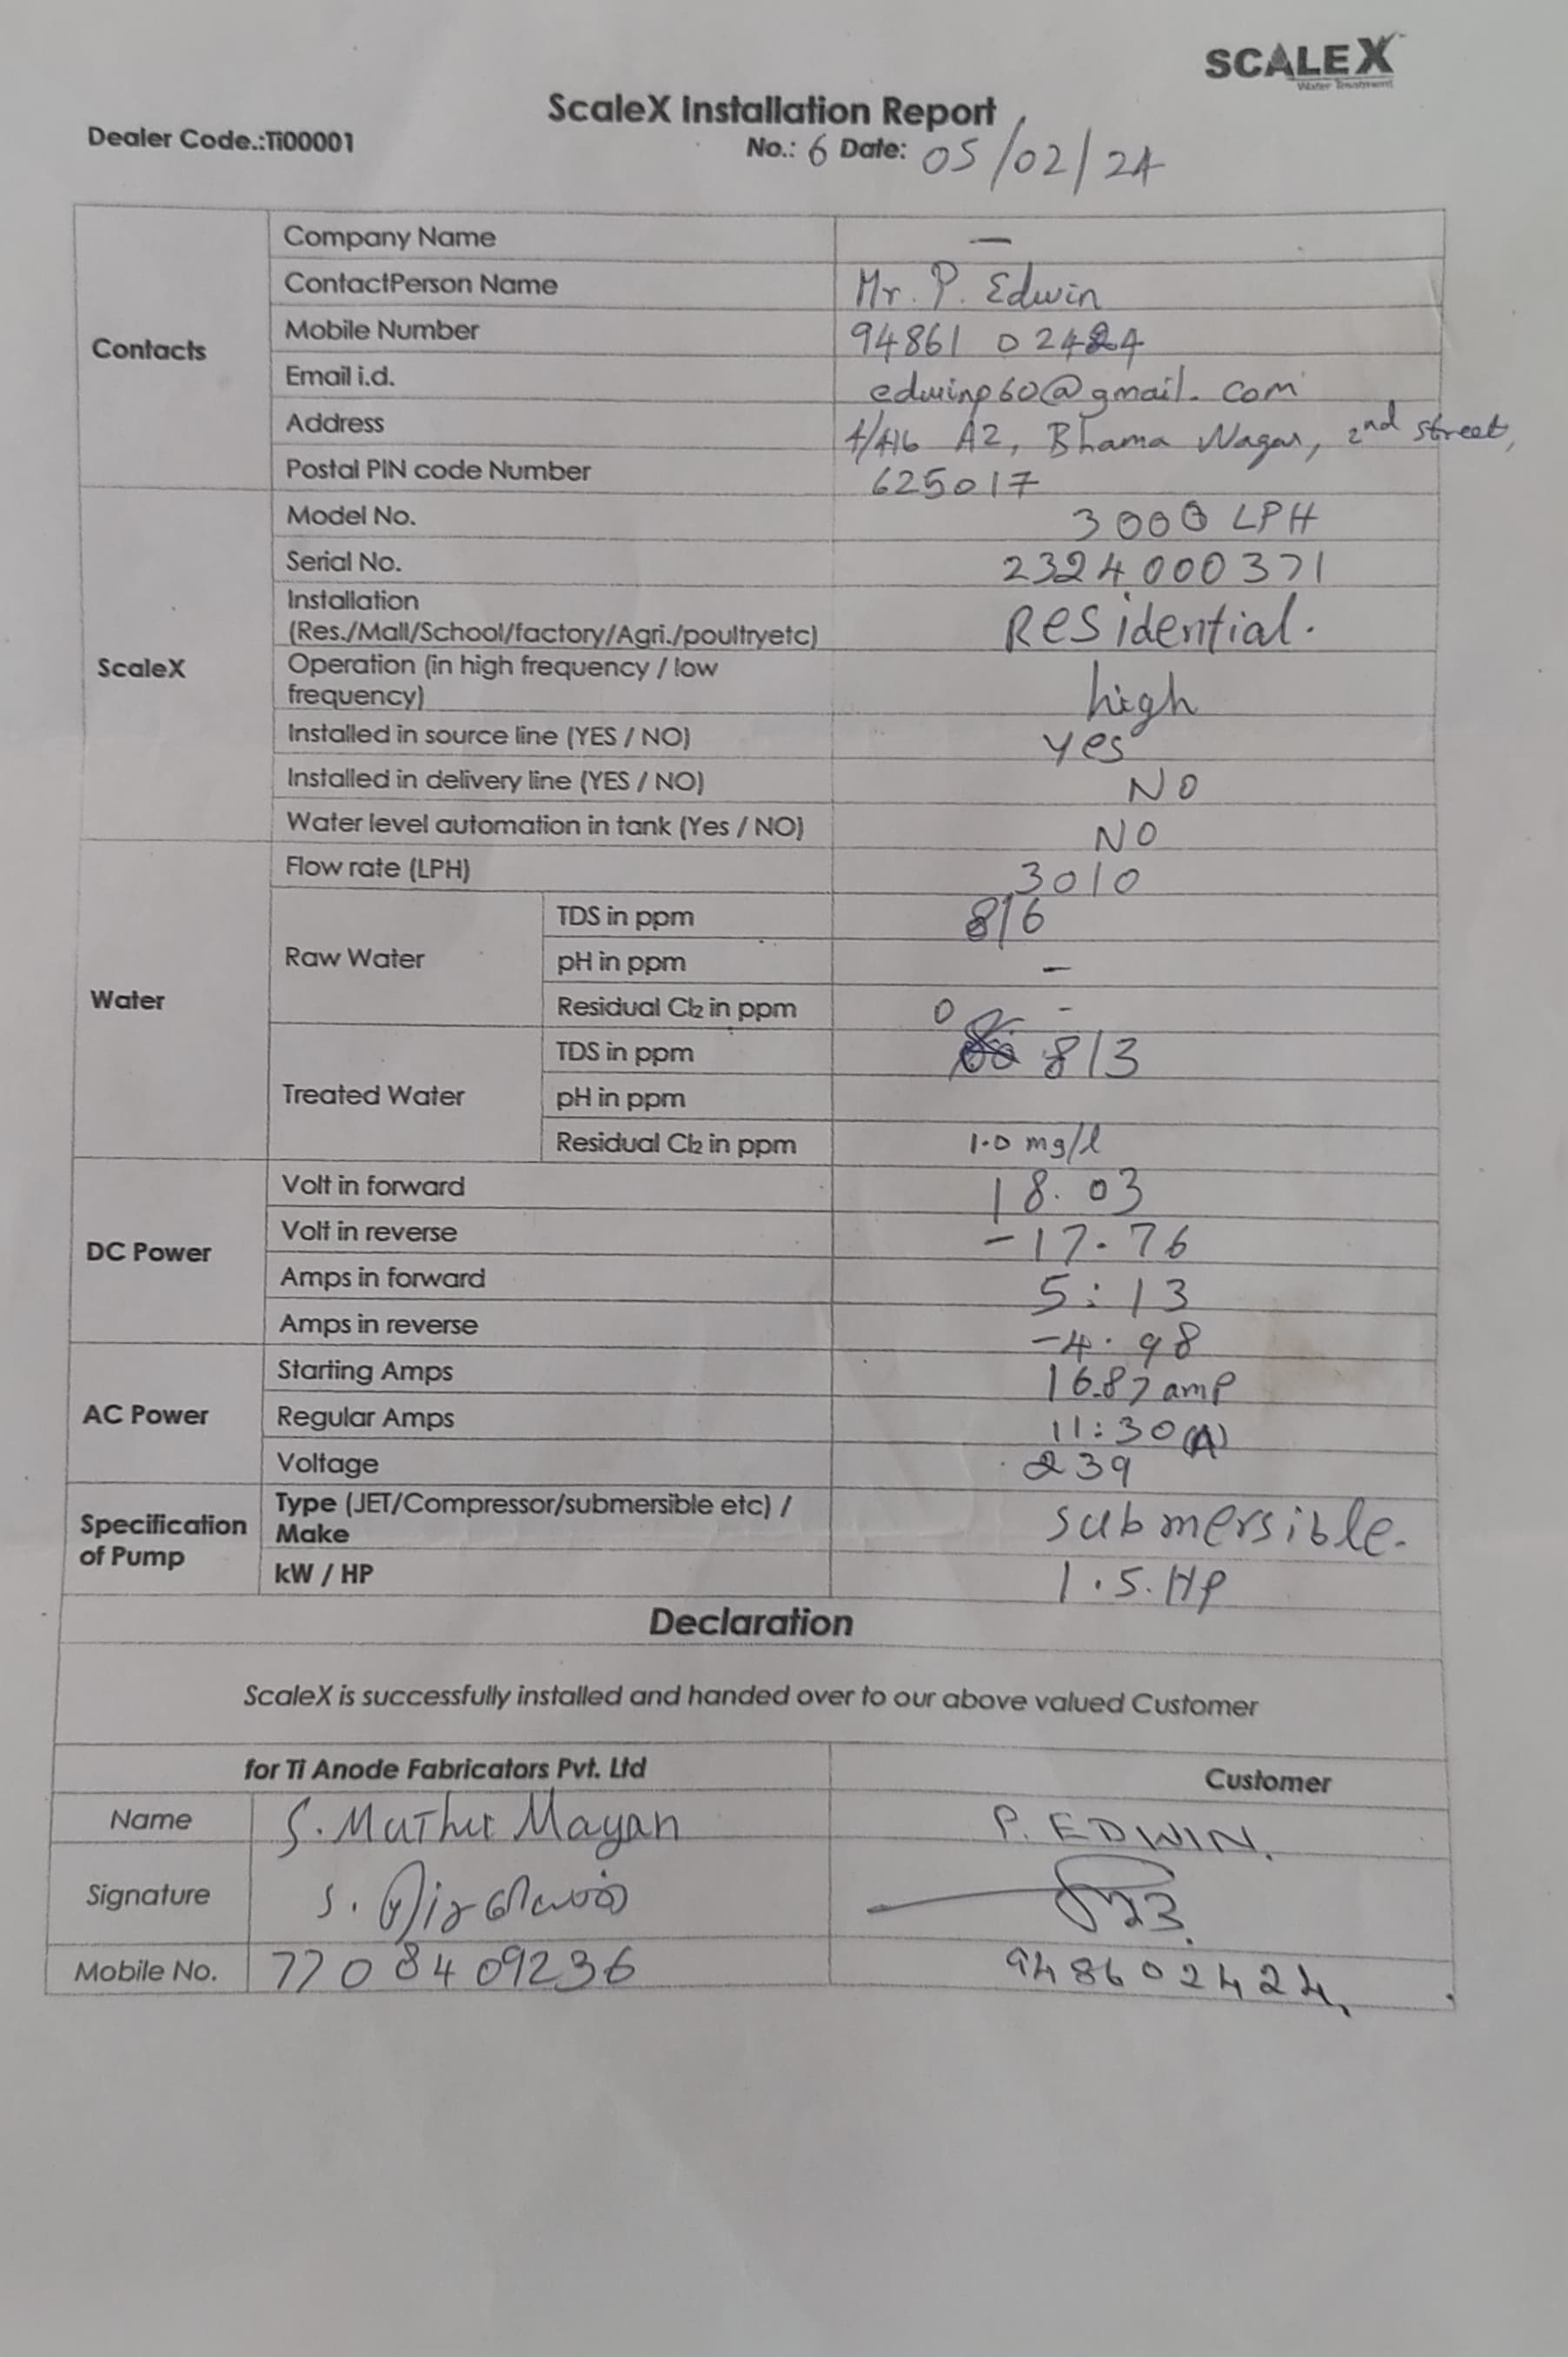 SCALEX
Water Treatment
ScaleX Installation Report
Dealer Code.:Ti00001
No.: 6 Date: 05/02/24
Contacts
Company Name —
ContactPerson Name Mr. P. Edwin
Mobile Number 94861 02424
Email i.d. edwinp60@gmail.com
Address 4/416 A2, Bhama Nagar, 2nd street,
Postal PIN code Number 625017
ScaleX
Model No. 3000 LPH
Serial No. 2324000371
Installation
(Res./Mall/School/factory/Agri./poultryetc) Residential.
Operation (in high frequency / low
frequency) high
Installed in source line (YES / NO) yes
Installed in delivery line (YES / NO) NO
Water level automation in tank (Yes / NO) NO
Water
Flow rate (LPH) 3010
Raw Water
TDS in ppm 816
pH in ppm —
Residual Cl2 in ppm 0 -
Treated Water
TDS in ppm 813
pH in ppm
Residual Cl2 in ppm 1.0 mg/l
DC Power
Volt in forward 18.03
Volt in reverse -17.76
Amps in forward 5:13
Amps in reverse -4.98
AC Power
Starting Amps 16.87 amp
Regular Amps 11:30 (A)
Voltage 239
Specification
of Pump
Type (JET/Compressor/submersible etc) /
Make submersible.
kW / HP 1.5.Hp
Declaration
ScaleX is successfully installed and handed over to our above valued Customer
for Ti Anode Fabricators Pvt. Ltd Customer
Name S. Muthu Mayan P. EDWIN.
Signature
Mobile No. 7708409236 948602424.